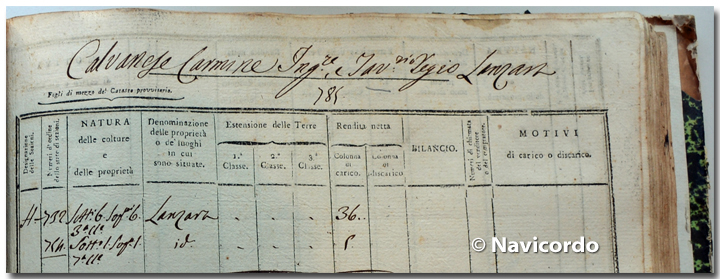 Calvanese Carmine Ing.re e Tav.rio Regio Lanzara
785
Fogli di mezzo del Catasto provvisorio.
Designazione delle Sezioni.
Numeri d'ordine delle terre di sezioni.
NATURA
delle colture
e
delle proprietà
Denominazione
delle proprietà
o de' luoghi
in cui
sono situate.
Estensione delle Terre
1.ª Classe.
2.ª Classe.
3.ª Classe.
Rendita netta
Colonna di carico.
Colonna di discarico
BILANCIO.
Numeri di chiamata del venditore o del compratore.
MOTIVI
di carico o discarico.
H 732 Sott.i 6. Sop.i 6. Lanzara 36.
3.a cl.e
id.
7.a cl.e
© Navicordo